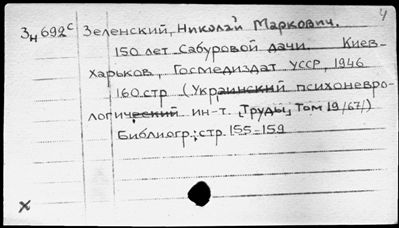 4
Зн692с Зеленский, Николай Маркович.
150 лет Сабуровой дачи. Киев-
Харьков, Госмедиздат УССР, 1946
160 стр (Украинский психоневро-
логический ин-т. Труды, Том 19/67/)
Библиогр.: стр. 155-159
x